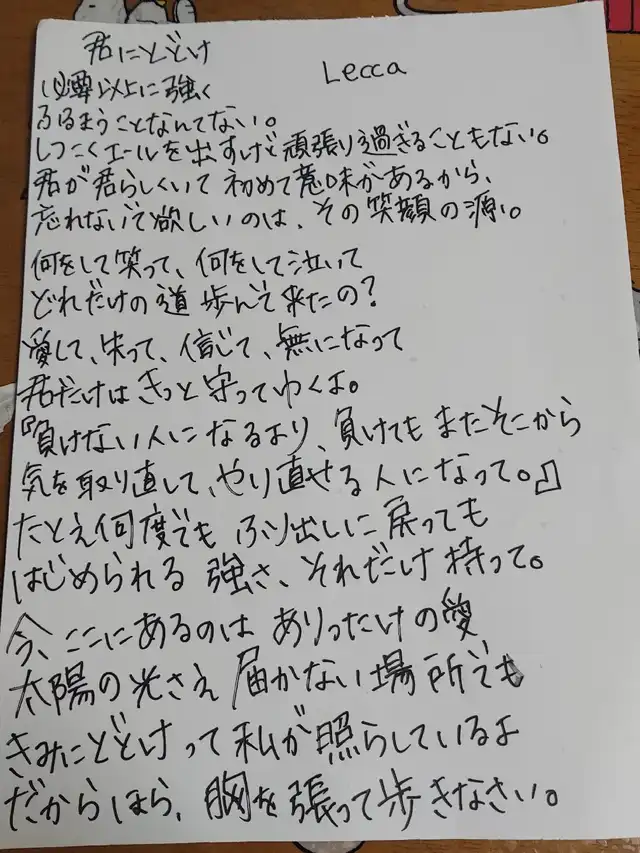 君にとどけ
Lecca
必要以上に強く
ふるまうことなんてない。
しつこくエールを出すけど頑張り過ぎることもない。
君が君らしくいて初めて意味があるから、
忘れないで欲しいのは、その笑顔の源い。
何をして笑って、何をして泣いて
どれだけの道歩んで来たの？
愛して、失って、信じて、無になって
君だけはきっと守ってゆくよ。
『負けない人になるより、負けてもまたそこから
気を取り直して、やり直せる人になって。』
たとえ何度でもふり出しに戻っても
はじめられる強さ、それだけ持って。
今、ここにあるのはありったけの愛
太陽の光さえ届かない場所でも
きみにとどけって私が照らしているよ
だからほら、胸を張って歩きなさい。